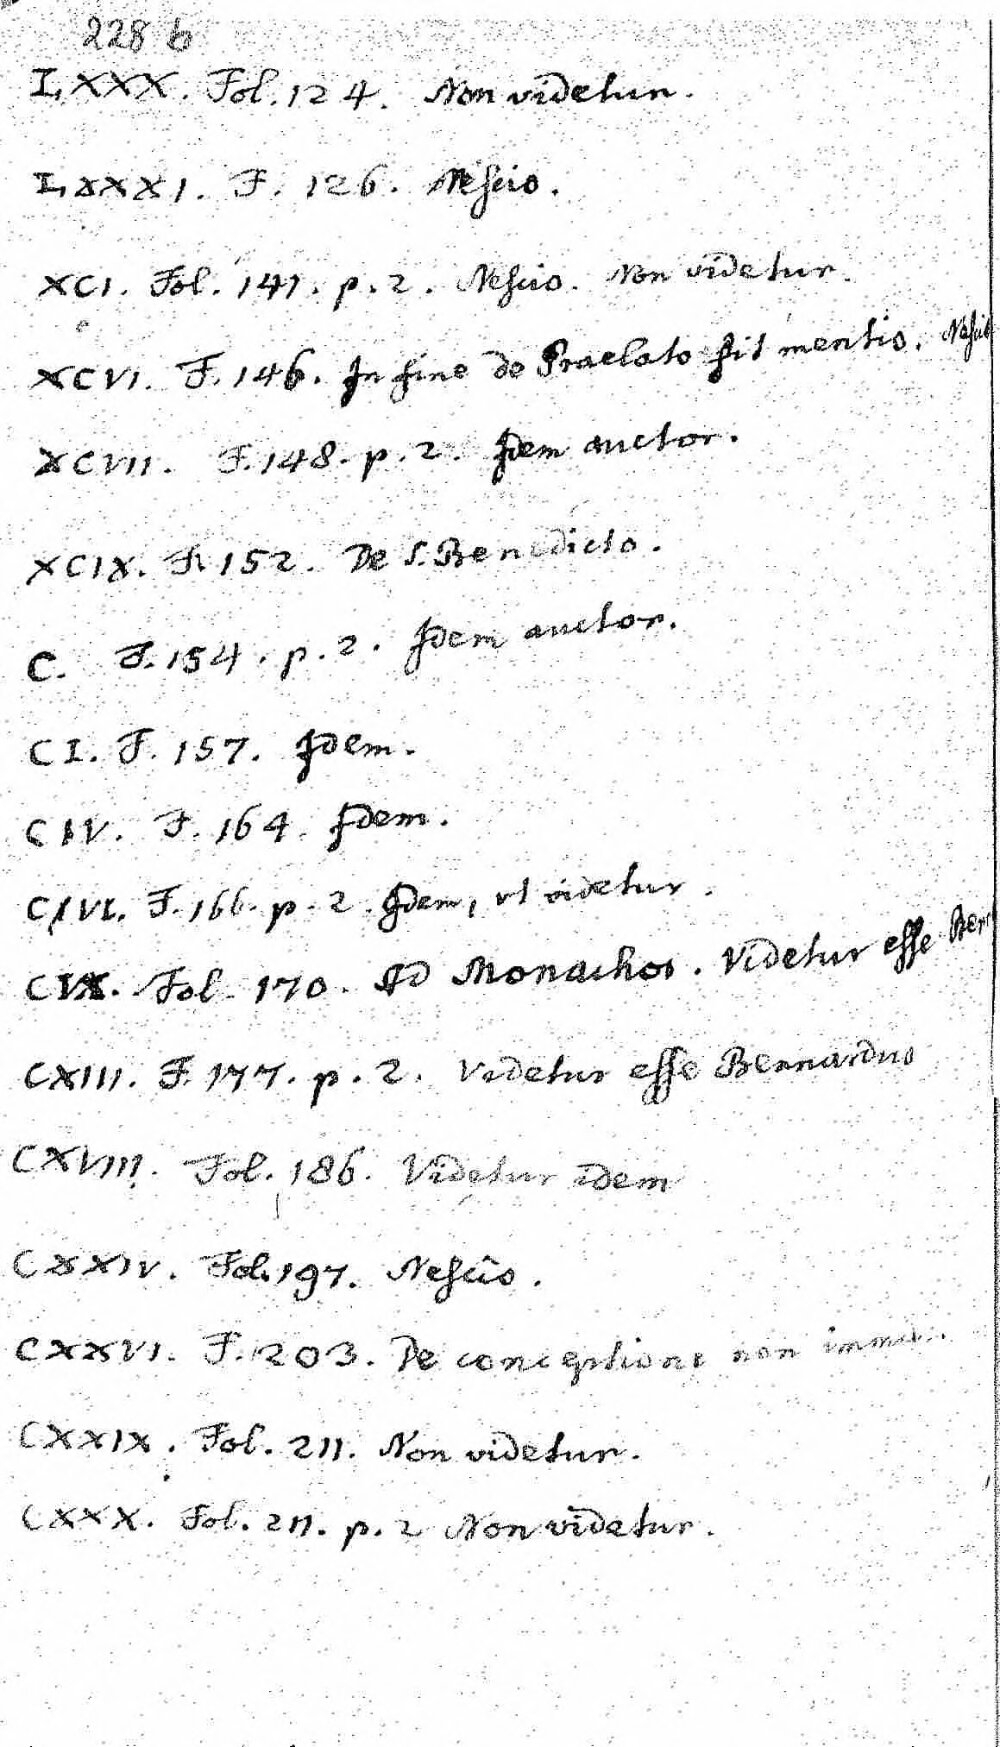 228 b
LXXX. Fol. 124. Non videtur.
LXXXI. F. 126. Nescio.
XCI. Fol. 141. p. 2. Nescio. Non videtur.
XCVI. F. 146. In fine de Praelato fit mentio. Nescio
XCVII. F. 148. p. 2. Idem auctor.
XCIX. F. 152. De S. Benedicto.
C. F. 154. p. 2. Idem auctor.
CI. F. 157. Idem.
CIV. F. 164. Idem.
F. 166. p. 2. Idem, ut videtur.
CIX. Fol. 170. Ad Monachos. Videtur esse Ber
CXIII. F. 177. p. 2. Videtur esse Bernardus
CXVIII. Fol. 186. Videtur idem
CXXIV. Fol. 197. Nescio.
CXXVI. F. 203. De conceptione non
CXXIX. Fol. 211. Non videtur.
CXXX. Fol. 211. p. 2 Non videtur.